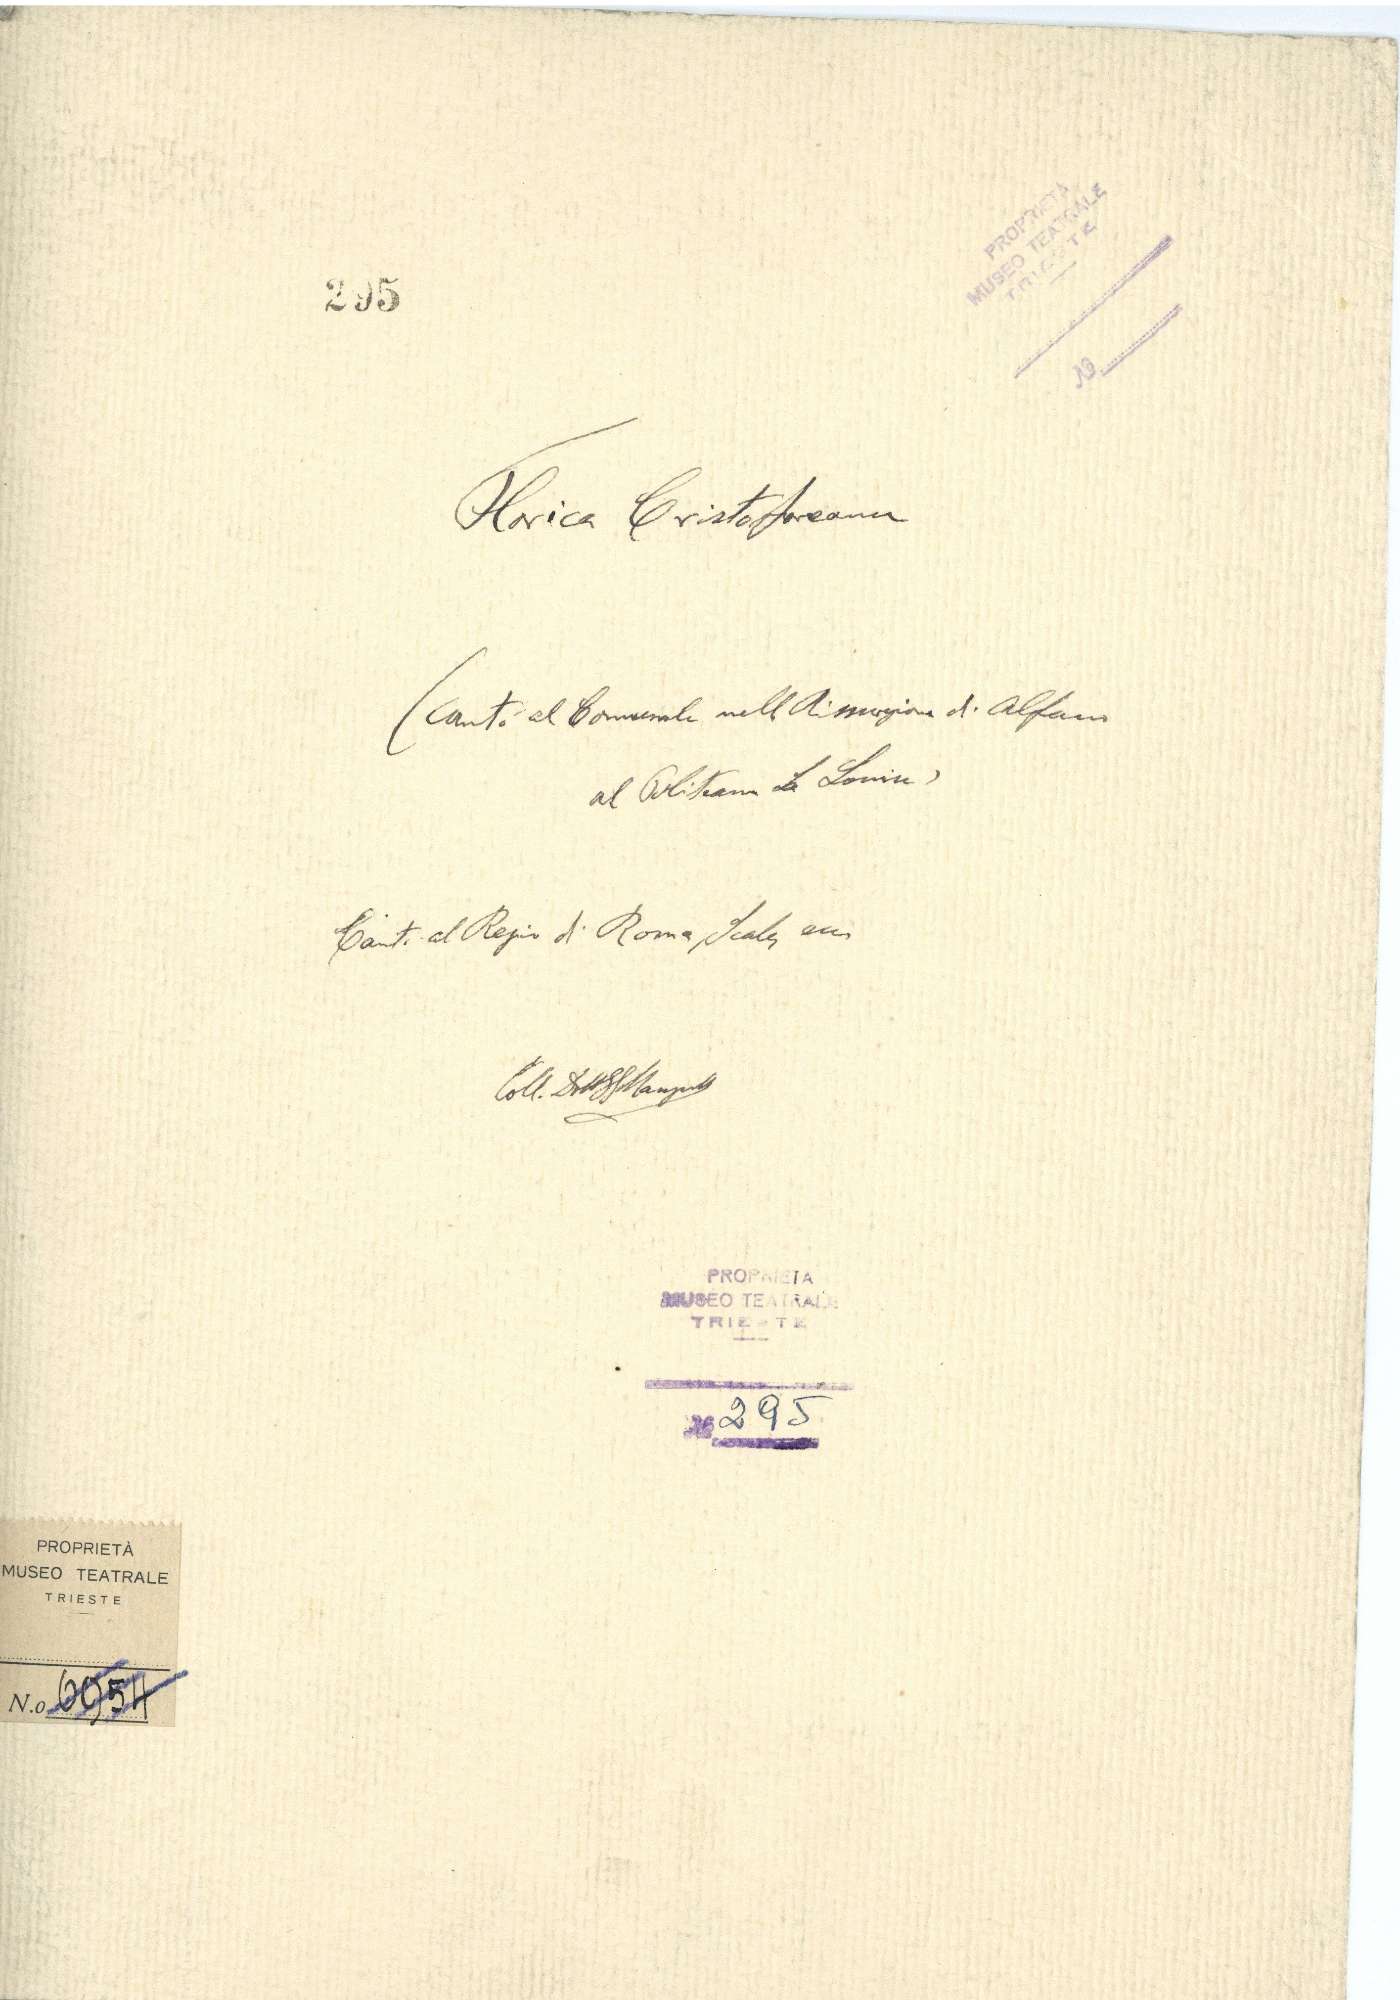 PROPRIETÀ
MUSEO TEATRALE
TRIESTE
No
295
Florica Cristoforeanu
(Cantò al Comunale nella Risurrezione di Alfano
al Politeama La Louise)
Cantò al Regio di Roma, Scala, ecc.
Coll. Dott
PROPRIETA
MUSEO TEATRALE
TRIESTE
No 295
PROPRIETÀ
MUSEO TEATRALE
TRIESTE
N.o 6954